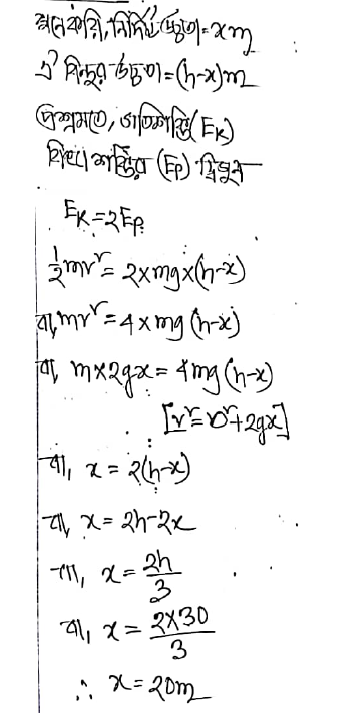 মনেকরি, নির্দিষ্ট উচ্চতা = xm
ঐ বিন্দুর উচ্চতা = (h-x)m
প্রশ্নমতে, গতিশক্তি (Eₖ)
বিভব শক্তির (Eₚ) দ্বিগুন
Eₖ = 2Eₚ
½mv² = 2×mg×(h-x)
বা, mv² = 4×mg (h-x)
বা, m×2gx = 4mg (h-x)
[v² = 0² + 2gx]
বা, x = 2(h-x)
বা, x = 2h-2x
বা, x = 2h/3
বা, x = 2×30/3
∴ x = 20m